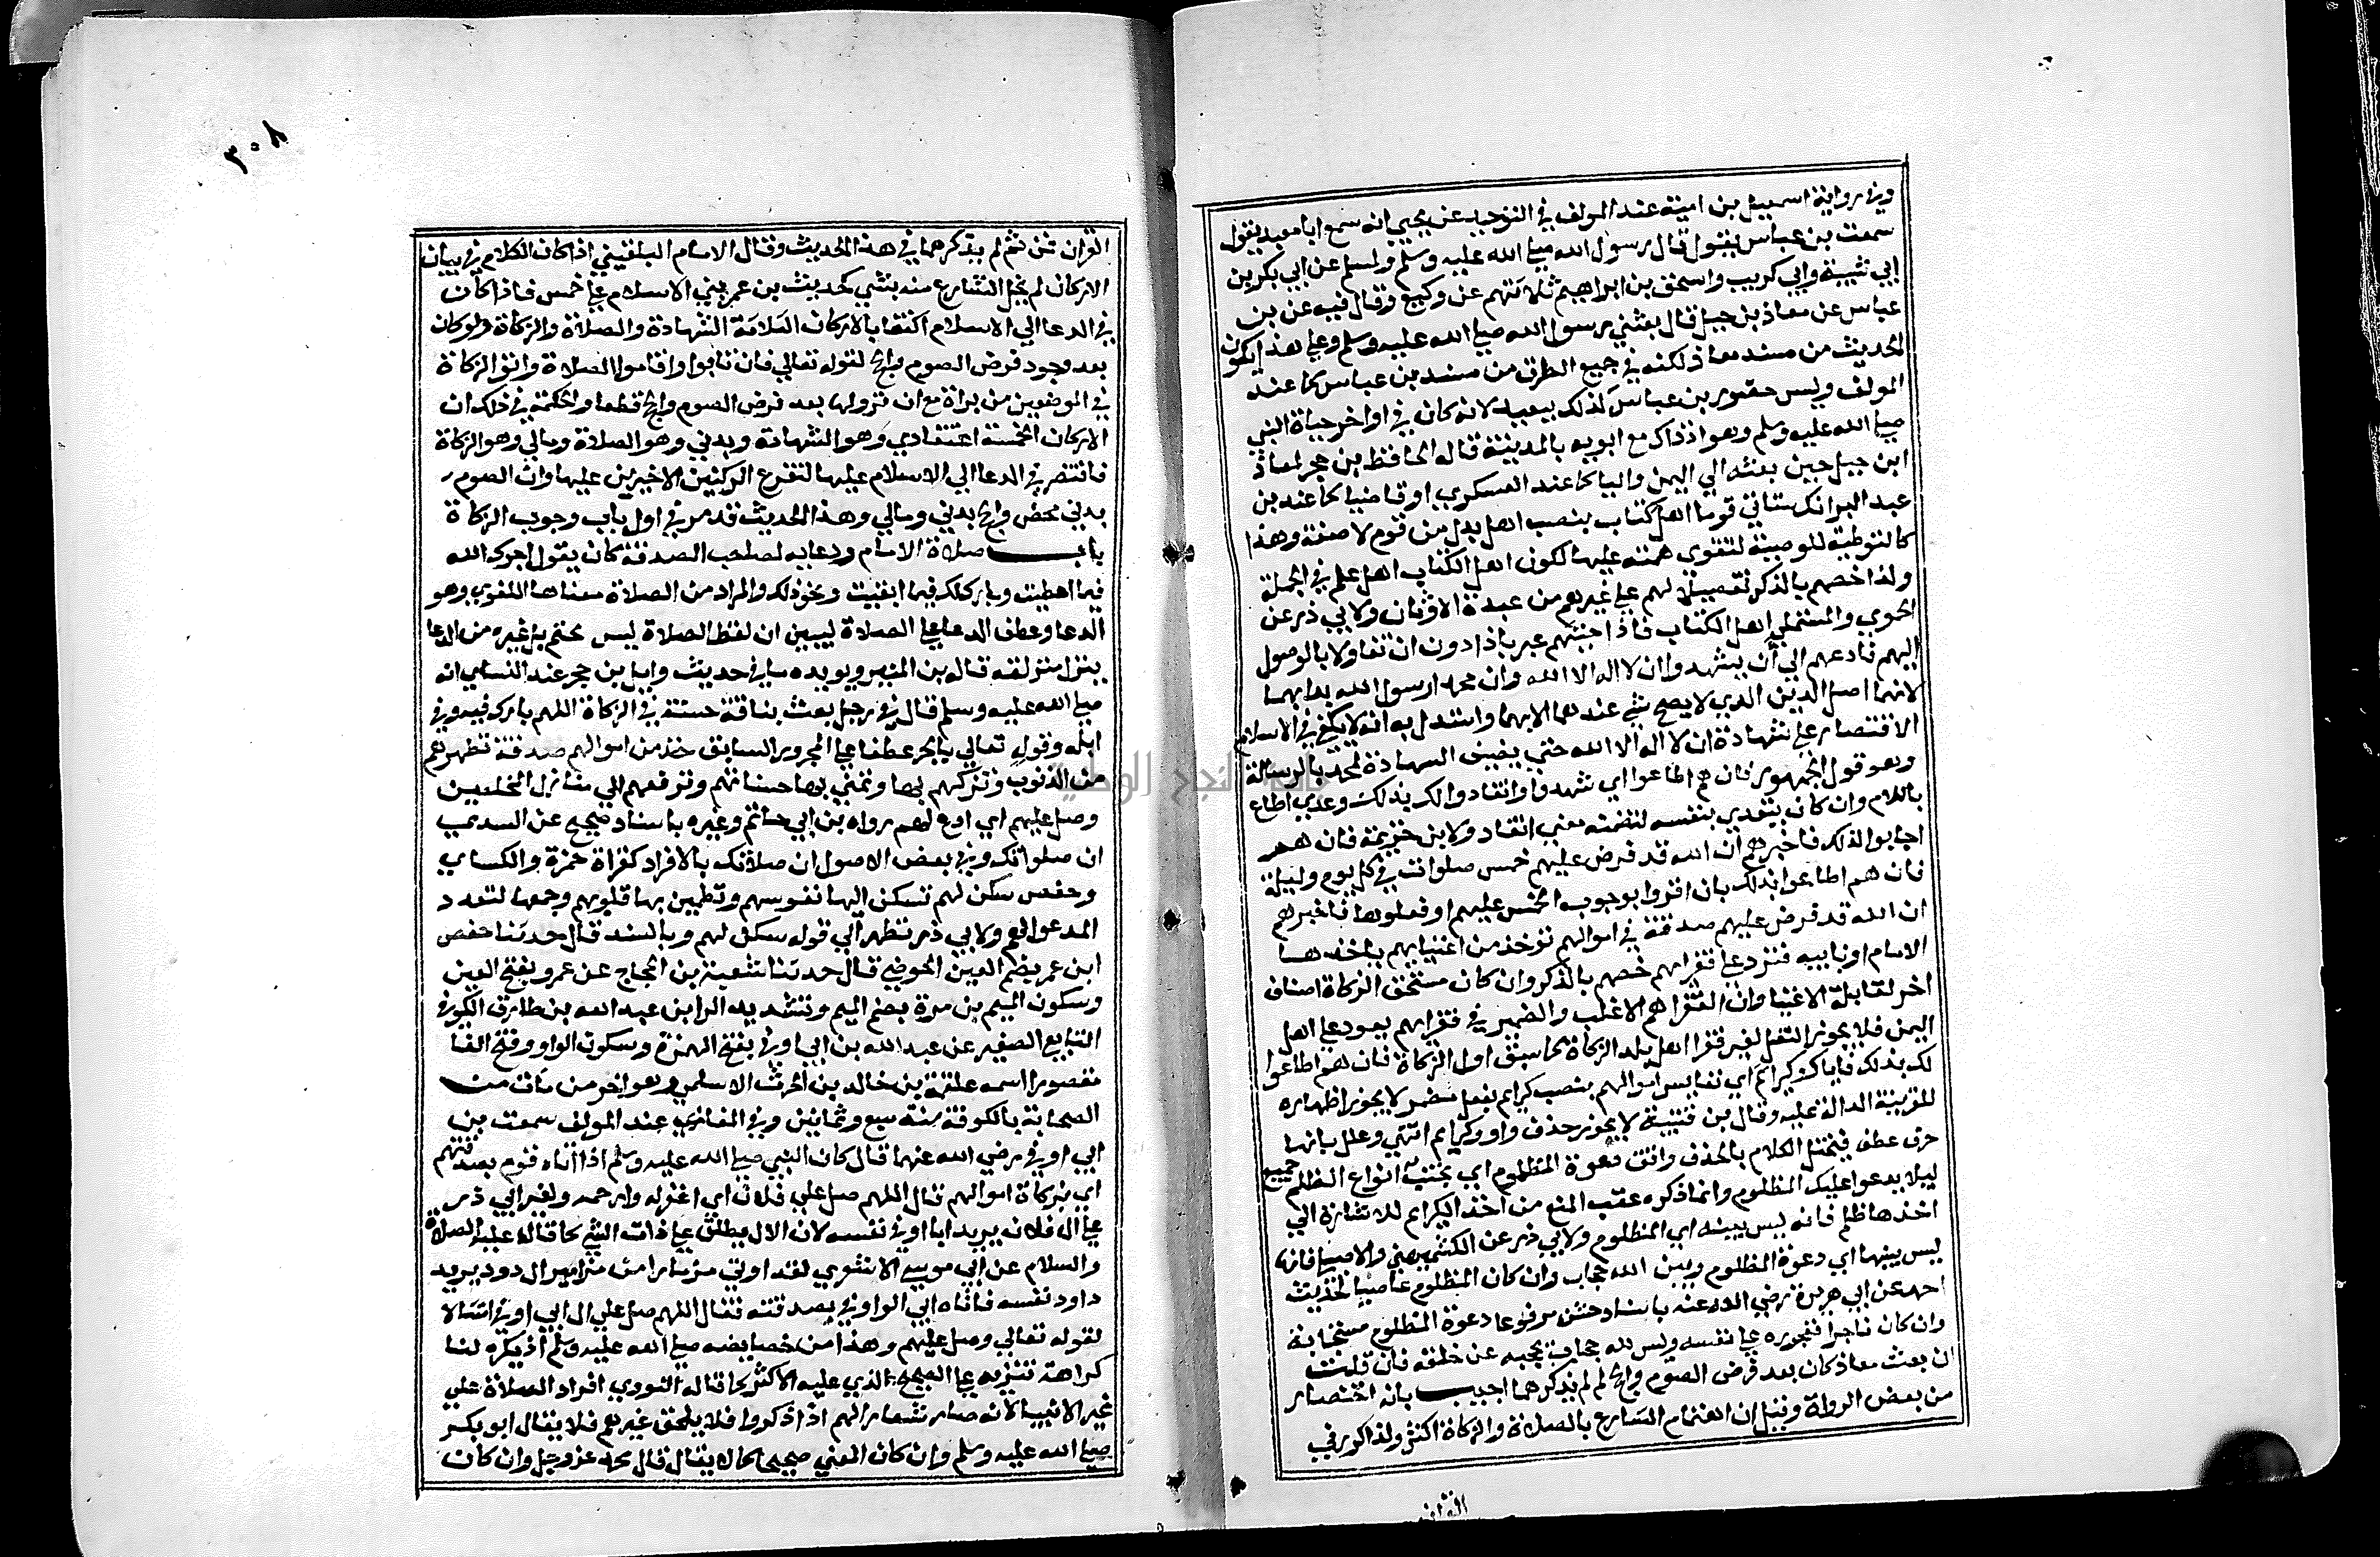 وفي رواية اسمعيل بن امية عند المولف في التوحيد عن يحيي انه سمع ابا معبد يقول
سمعت بن عباس يقول قال رسول الله صلي الله عليه وسلم ولمسلم عن ابي بكر بن
ابي شيبة وابي كريب واسحق بن ابراهيم ثلاثتهم عن وكيع وقال فيه عن بن
عباس عن معاذ بن جبل قال بعثني رسول الله صلي الله عليه وسلم وعلي هذا يكون
الحديث من مسند معاذ لكنه في جميع الطرق من مسند بن عباس كما عند
المولف وليس حضور بن عباس لذلك ببعيد لانه كان في اواخر حياة النبي
صلي الله عليه وسلم وهو اذ ذاك مع ابويه بالمدينة قاله الحافظ بن حجر لمعاذ
ابن جبل حين بعثه الي اليمن واليا كما عند العسكري او قاضيا كما عند بن
عبد البر انك ستاتي قوما اهل كتاب بنصب اهل بدل من قوم لا صفة وهذا
كالتوطية للوصية لتقوي همته عليها لكون اهل الكتاب اهل علم في الجملة
ولذا خصهم بالذكر تفضيلا لهم علي غيرهم من عبدة الاوثان ولابي ذر عن
الحموي والمستملي اهل الكتاب فاذا جئتهم عبر باذا دون ان تفاولا بالوصول
اليهم فادعهم الي ان يشهدوا ان لا اله الا الله وان محمدا رسول الله بدا بهما
لانهما اصل الدين الذي لا يصح شي عندهما الا بهما واستدل به انه لا يكفي في الاسلام
الاقتصار علي شهادة ان لا اله الا الله حتي يضيف الشهادة لمحمد بالرسالة
وهو قول الجمهور فان هم اطاعوا اي شهدوا وانقادوا لك بذلك وعدي اطاع
باللام وان كان يتعدي بنفسه لتضمنه معني انقاد ولابن خزيمة فان هم
اجابوا لذلك فاخبرهم ان الله قد فرض عليهم خمس صلوات في كل يوم وليلة
فان هم اطاعوا بذلك بان اقروا بوجوب الخمس عليهم او فعلوها فاخبرهم
ان الله قد فرض عليهم صدقة في اموالهم توخذ من اغنيايهم ياخذها
الامام او نايبه فترد علي فقرايهم خصهم بالذكر وان كان مستحق الزكاة اصناف
اخر لمقابلة الاغنيا وان الفقرا هم الاغلب والضمير في فقرايهم يعود علي اهل
اليمن فلا يجوز النقل لغير فقرا اهل بلد الزكاة كما سبق اول الزكاة فان هم اطاعوا
لك بذلك فاياك وكرايم اي نفايس اموالهم بنصب كرايم بفعل مضمر لا يجوز اظهاره
للقرينة الدالة عليه وقال بن قتيبة لا يجوز حذف واو وكرايم انتهي وعلل بانها
حرف عطف فيختل الكلام بالحذف واتق دعوة المظلوم اي تجنب جميع انواع الظلم
ليلا يدعوا عليك المظلوم وانما ذكره عقب المنع من اخذ الكرايم للاشارة الي
اخذها ظلم فانه ليس بينه اي المظلوم ولابي ذر عن الكشميهني والاصيلي فانها
ليس بينها اي دعوة المظلوم وبين الله حجاب وان كان المظلوم عاصيا لحديث
احمد عن ابي هريرة رضي الله عنه باسناد حسن مرفوعا دعوة المظلوم مستجابة
وان كان فاجرا ففجوره علي نفسه وليس لله حجاب يحجبه عن خلقه فان قلت
ان بعث معاذ كان بعد فرض الصوم والحج لم لم يذكرهما اجيب بانه اختصار
من بعض الرواة وقيل ان اهتمام الشارع بالصلاة والزكاة اكثر ولذا كرر في
القران
٣٠٨
القران فمن ثم لم يذكرهما في هذا الحديث وقال الامام البلقيني اذا كان الكلام في بيان
الاركان لم يخل الشارع منه بشي كحديث بن عمر بني الاسلام علي خمس فاذا كان
في الدعا الي الاسلام اكتفا بالاركان الثلاثة الشهادة والصلاة والزكاة ولو كان
بعد وجود فرض الصوم والحج لقوله تعالي فان تابوا واقاموا الصلاة واتوا الزكاة
في الموضعين من براة مع ان نزولها بعد فرض الصوم والحج قطعا والحكمة في ذلك ان
الاركان الخمسة اعتقادي وهو الشهادة وبدني وهو الصلاة ومالي وهو الزكاة
فاقتصر في الدعا الي الاسلام عليها لتفرع الركنين الاخيرين عليها وان الصوم
بدني محض والحج بدني ومالي وهذا الحديث قد مر في اول باب وجوب الزكاة
باب صلاة الامام ودعايه لصاحب الصدقة كان يقول اجرك الله
فيما اعطيت وبارك لك فيما ابقيت ونحو ذلك والمراد من الصلاة معناها اللغوي وهو
الدعا وعطف الدعا علي الصلاة ليبين ان لفظ الصلاة ليس بحتم بل غيره من الدعا
ينزل منزلته قاله بن المنير ويويده ما في حديث وايل بن حجر عند النساي انه
صلي الله عليه وسلم قال في رجل بعث بناقة حسنة في الزكاة اللهم بارك فيه وفي
ابله وقول تعالي بالجر عطفا علي المجرور السابق خذ من اموالهم صدقة تطهرهم
من الذنوب وتزكيهم بها وتنمي بها حسناتهم وترفعهم الي منازل المخلصين
وصل عليهم اي ادع لهم رواه بن ابي حاتم وغيره باسناد صحيح عن السدي
ان صلواتك وفي بعض الاصول ان صلاتك بالافراد كقراة حمزة والكساي
وحفص سكن لهم تسكن اليها نفوسهم وتطمين بها قلوبهم وجمعها لتعدد
المدعو لهم ولابي ذر تطهر الي قوله سكن لهم وبالسند قال حدثنا حفص
ابن عمر بضم العين الحوضي قال حدثنا شعبة بن الحجاج عن عمرو بفتح العين
وسكون الميم بن مرة بضم الميم وتشديد الرا بن عبد الله بن طارق الكوفي
التابعي الصغير عن عبد الله بن ابي اوفي بفتح الهمزة وسكون الواو وفتح الفا
مقصورا اسمه علقمة بن خالد بن الحرث الاسلمي وهو اخر من مات من
الصحابة بالكوفة سنة سبع وثمانين وفي المغازي عند المولف سمعت بن
ابي اوفي رضي الله عنهما قال كان النبي صلي الله عليه وسلم اذا اتاه قوم بصدقتهم
اي بزكاة اموالهم قال اللهم صل علي فلان اي اغفر له وارحمه ولغير ابي ذر
علي ال فلان يريد ابا اوفي نفسه لان الال يطلق علي ذات الشي كما قاله عليه الصلاة
والسلام عن ابي موسي الاشعري لقد اوتي مزمارا من مزامير ال داود يريد
داود نفسه فاتاه ابي ابو اوفي بصدقته فقال اللهم صل علي ال ابي اوفي امتثالا
لقوله تعالي وصل عليهم وهذا من خصايصه صلي الله عليه وسلم اذ يكره لنا
كراهة تنزيه علي الصحيح الذي عليه الاكثر كما قاله النووي افراد الصلاة علي
غير الانبيا لانه صار شعارا لهم اذا ذكروا فلا يلحق غيرهم فلا يقال ابو بكر
صلي الله عليه وسلم وان كان المعني صحيحا كما لا يقال قال محمد عز وجل وان كان